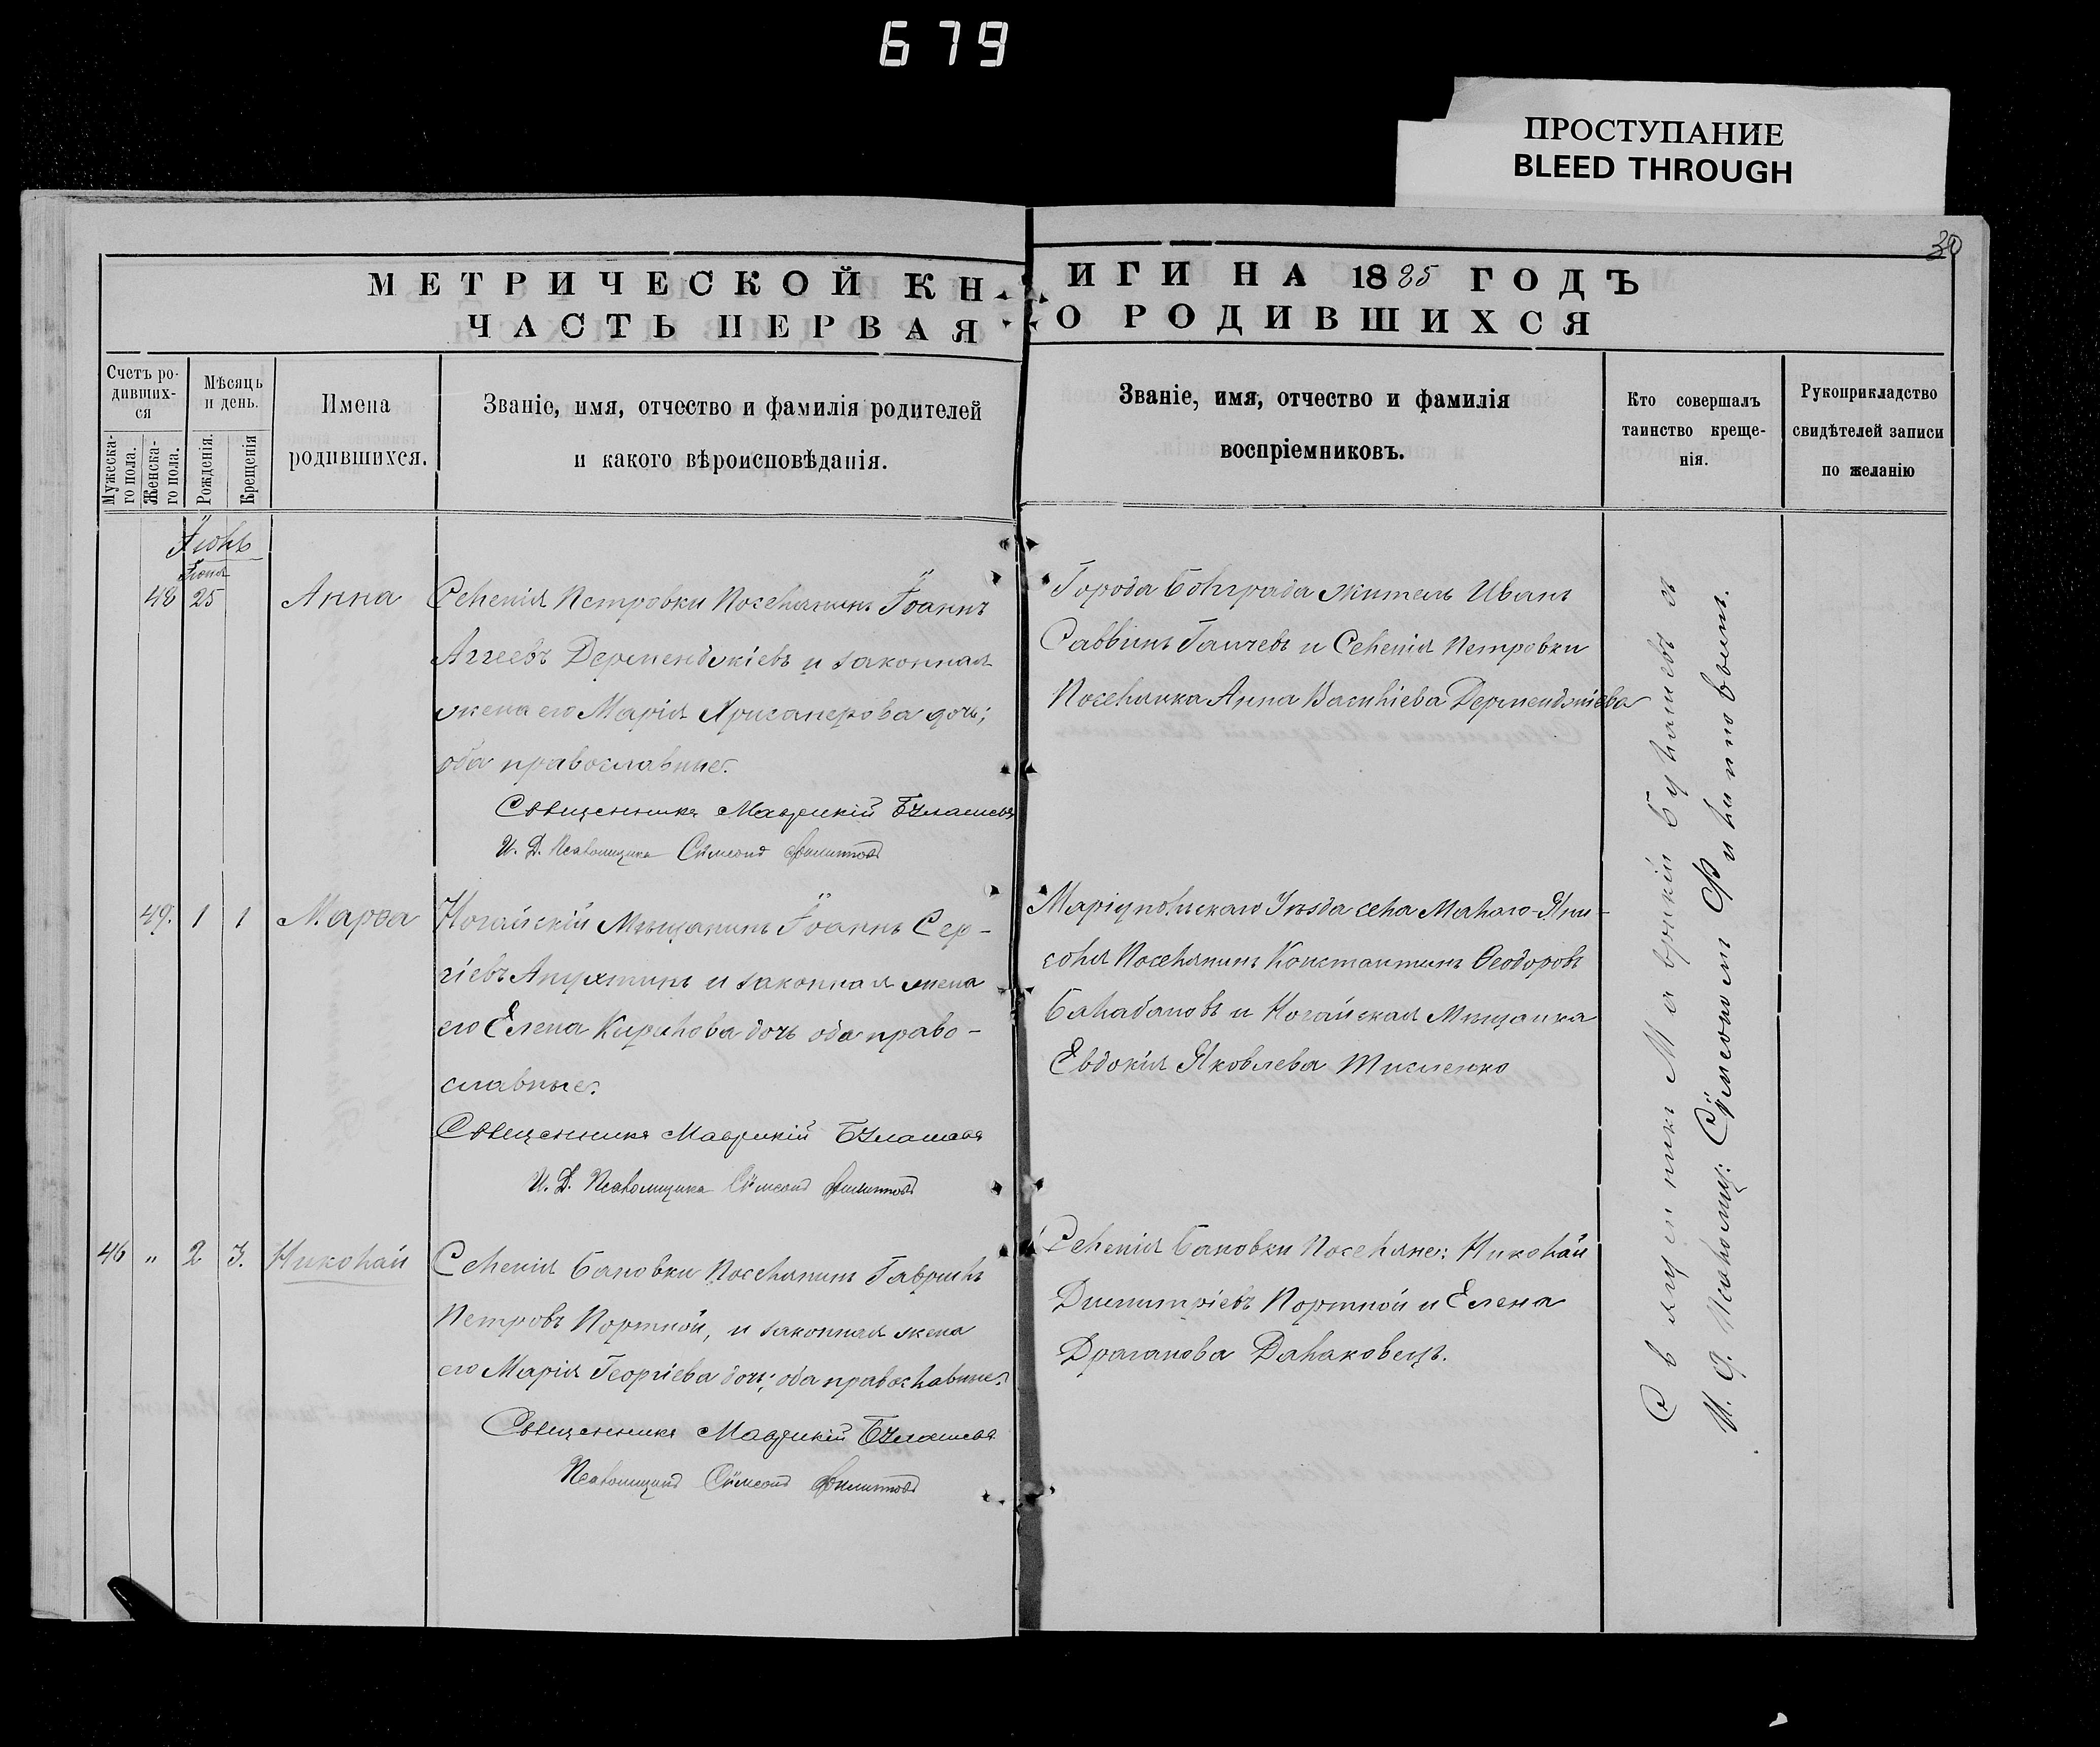 679
ПРОСТУПАНИЕ
BLEED THROUGH
30
МЕТРИЧЕСКОЙ КНИГИ НА 1885 ГОДЪ
ЧАСТЬ ПЕРВАЯ О РОДИВШИХСЯ
Счетъ ро-
дивших-
ся
Мужеска-
го пола.
Женска-
го пола.
Мѣсяцъ
и день.
Рожденія.
Крещенія
Имена
родившихся.
Званіе, имя, отчество и фамилія родителей
и какого вѣроисповѣданія.
Званіе, имя, отчество и фамилія
воспріемниковъ.
Кто совершалъ
таинство креще-
нія.
Рукоприкладство
свидѣтелей записи
по желанію
Іюль
Іюня
48 25
Анна
Селенія Петровки Поселянинъ Іоаннъ
Аггеевъ Дерменджіевъ и законная
жена его Марія дочь;
оба православные.
Священникъ Маврикій Булашевъ
И. Д. Псаломщика Сѵмеонъ Филипповъ
Города Болграда житель Иванъ
Саввинъ Ганчевъ и Селенія Петровки
Поселянка Анна Василіева Дерменджіева
49. 1 1
Марѳа
Ногайскій Мѣщанинъ Іоаннъ Сер-
гіевъ Апухтинъ и законная жена
его Елена Кирилова дочь оба право-
славные.
Священникъ Маврикій Булашевъ
И. Д. Псаломщика Сѵмеонъ Филипповъ
Маріупольскаго Уѣзда села Малаго-Яни-
соля Поселянинъ Константинъ Ѳеодоровъ
Балабановъ и Ногайская Мѣщанка
Евдокія Яковлева
46 " 2 3.
Николай
Селенія Бановки Поселянинъ Гавріилъ
Петровъ Портной, и законная жена
его Марія Георгіева дочь; оба православные.
Священникъ Маврикій Булашевъ
Псаломщикъ Сѵмеонъ Филипповъ
Селенія Бановки Поселяне: Николай
Димитріевъ Портной и Елена
Драганова Далаковецъ.
Священникъ Маврикій Булашевъ съ
И. д. Псаломщ: Сѵмеономъ Филипповымъ.